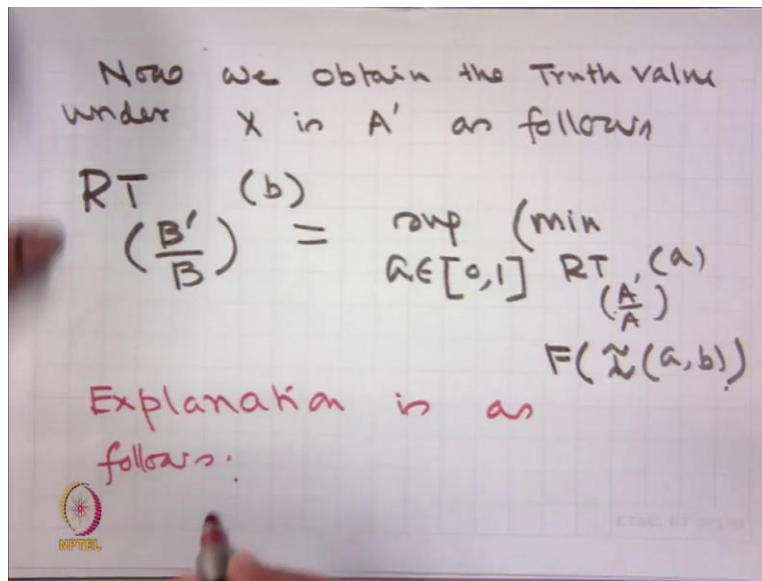 Now we obtain the Truth value
under X in A' as follows
RT(B'/B) (b) = sup (min
a∈[0,1] RT(A'/A) (a),
F(Ĩ(a,b))
Explanation is as
follows:
NPTEL